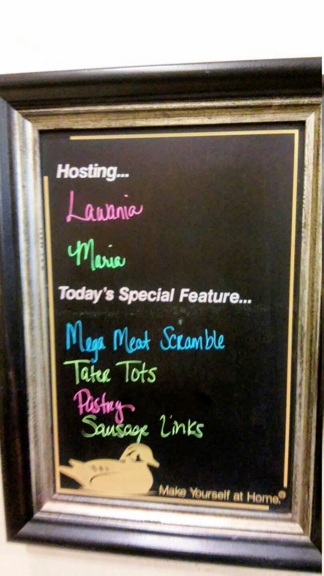 Hosting...
Lawania
Maria
Today's Special Feature...
Mega Meat Scramble
Tater Tots
Pastry
Sausage Links
Make Yourself at Home.®